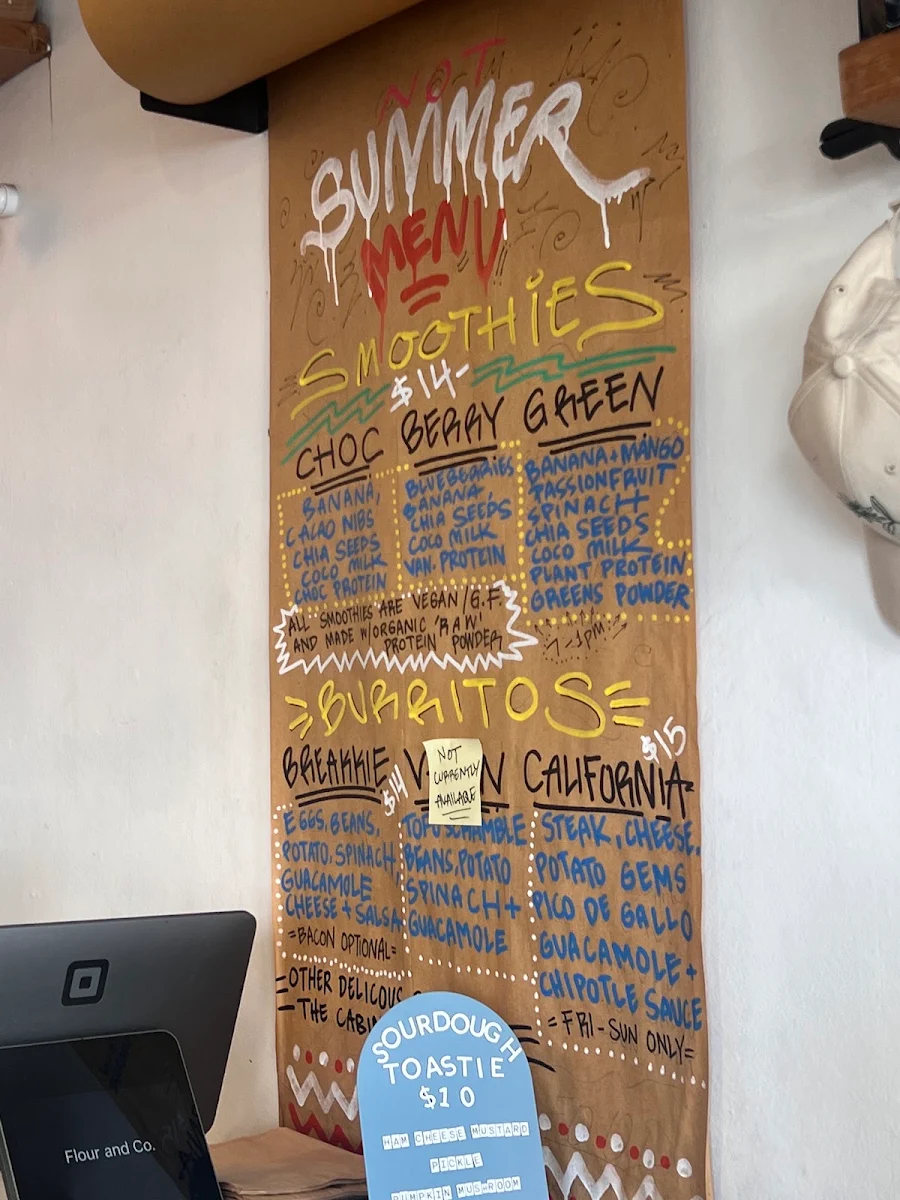 NOT
SUMMER
MENU
SMOOTHIES
$14-
CHOC
BANANA,
CACAO NIBS
CHIA SEEDS
COCO MILK
CHOC PROTEIN
BERRY
BLUEBERRIES
BANANA
CHIA SEEDS
COCO MILK
VAN. PROTEIN
GREEN
BANANA + MANGO
PASSIONFRUIT
SPINACH
CHIA SEEDS
COCO MILK
PLANT PROTEIN
GREENS POWDER
ALL SMOOTHIES ARE VEGAN/G.F.
AND MADE W/ORGANIC 'RAW'
PROTEIN POWDER
7-1PM
BURRITOS
BREAKKIE
$14
EGGS, BEANS,
POTATO, SPINACH,
GUACAMOLE
CHEESE + SALSA
=BACON OPTIONAL=
NOT
CURRENTLY
AVAILABLE
TOFU SCRAMBLE
BEANS, POTATO
SPINACH +
GUACAMOLE
$15
CALIFORNIA
STEAK, CHEESE,
POTATO GEMS
PICO DE GALLO
GUACAMOLE +
CHIPOTLE SAUCE
=FRI-SUN ONLY=
OTHER DELICOUS
THE
SOURDOUGH
TOASTIE
$10
HAM CHEESE MUSTARD
PICKLE
PUMPKIN MUSHROOM
Flour and Co.